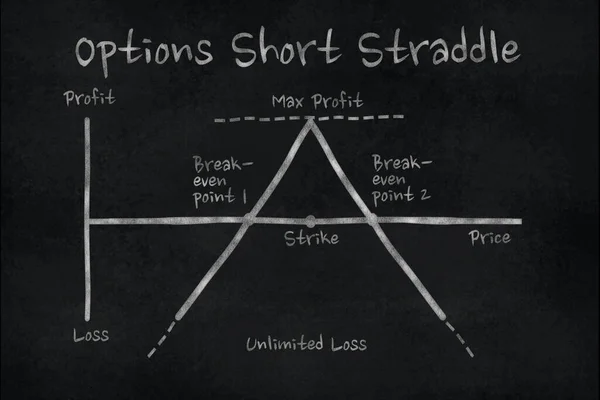 Options Short Straddle
Profit
Max Profit
Break-
even
point 1
Break-
even
point 2
Strike
Price
Loss
Unlimited Loss